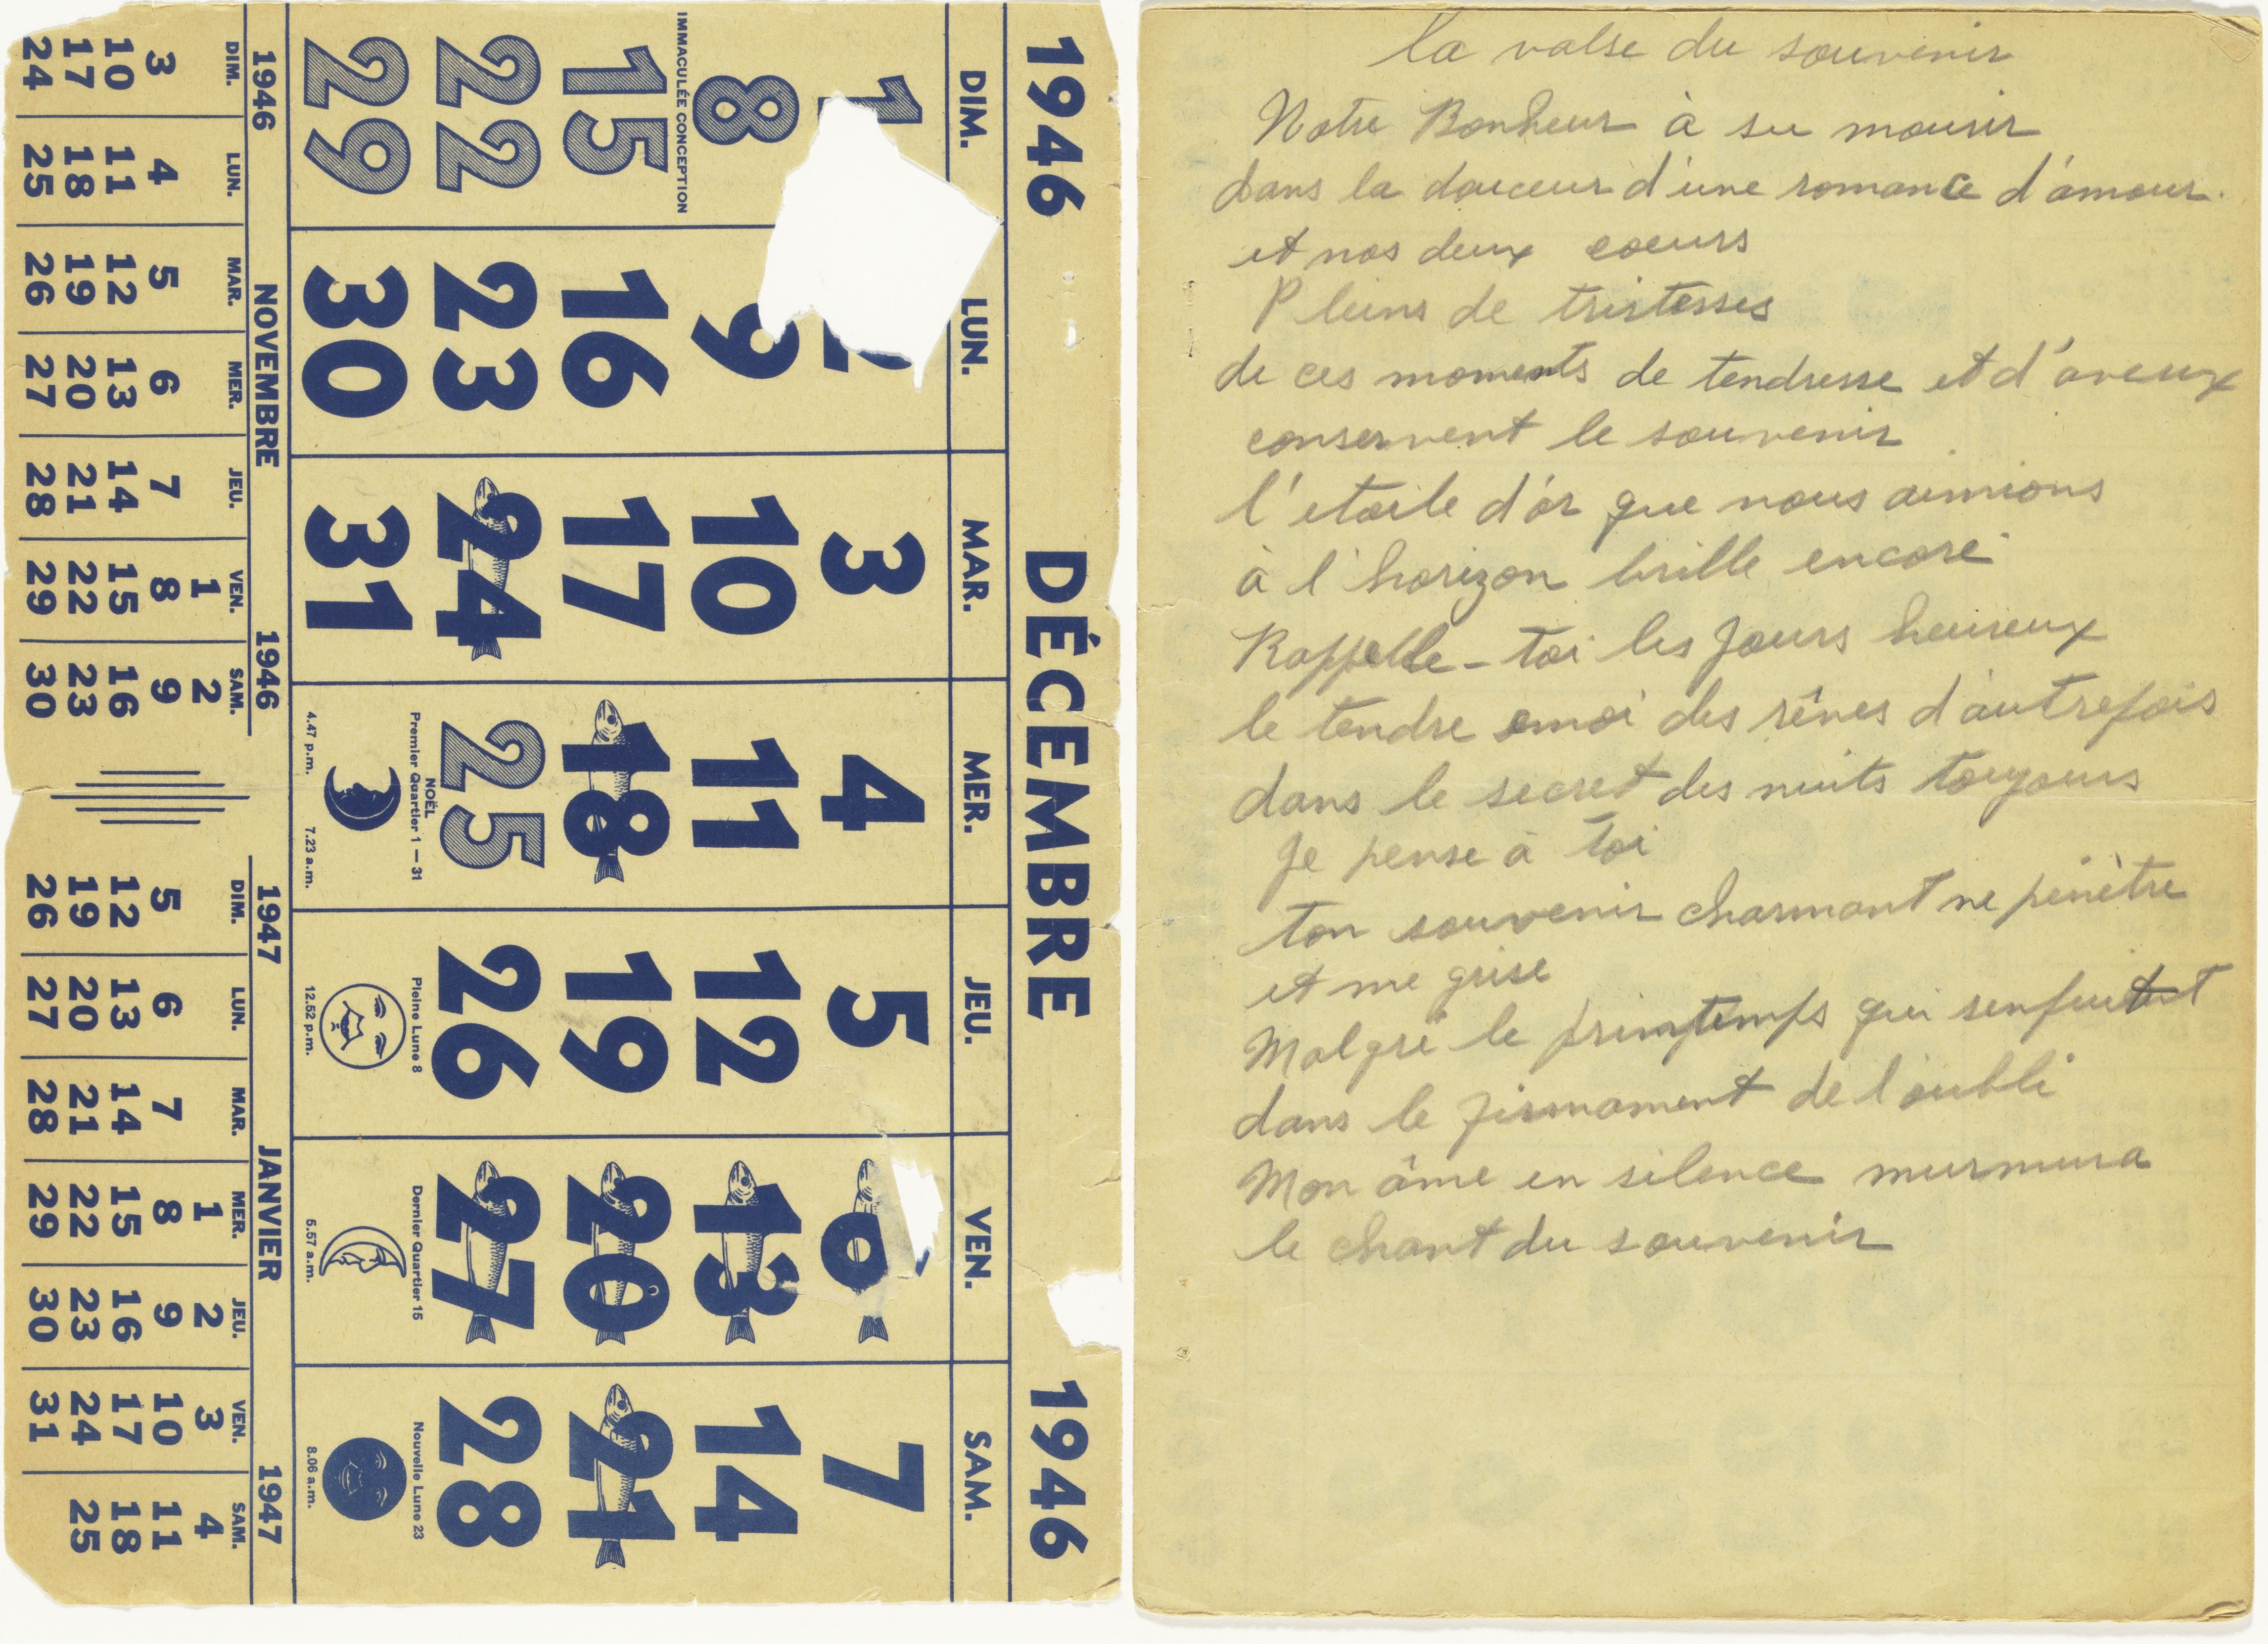 1946 DÉCEMBRE 1946
DIM. LUN. MAR. MER. JEU. VEN. SAM.
1 2 3 4 5 6 7
8 9 10 11 12 13 14
IMMACULÉE CONCEPTION
15 16 17 18 19 20 21
22 23 24 25 26 27 28
NOËL
Premier Quartier 1 — 31 Pleine Lune 8 Dernier Quartier 15 Nouvelle Lune 23
29 30 31
4.47 p.m. 7.23 a.m. 12.52 p.m. 5.57 a.m. 8.06 a.m.
1946 NOVEMBRE 1946
DIM. LUN. MAR. MER. JEU. VEN. SAM.
1 2
3 4 5 6 7 8 9
10 11 12 13 14 15 16
17 18 19 20 21 22 23
24 25 26 27 28 29 30
1947 JANVIER 1947
DIM. LUN. MAR. MER. JEU. VEN. SAM.
1 2 3 4
5 6 7 8 9 10 11
12 13 14 15 16 17 18
19 20 21 22 23 24 25
26 27 28 29 30 31
la valse du souvenir
Notre Bonheur à su mourir
dans la douceur d'une romance d'amour.
et nos deux coeurs
Pleins de tristesses
de ces moments de tendresse et d'aveux
conservent le souvenir
l'etoile d'or que nous aimions
à l'horizon brille encore
Rappelle-toi les jours heureux
le tendre emoi des rêves d'autrefois
dans le secret des nuits toujours
Je pense à toi
ton souvenir charmant me pénètre
et me grise
Malgré le printemps qui senfuit
dans le firmament de l'oubli
Mon âme en silence murmura
le chant du souvenir